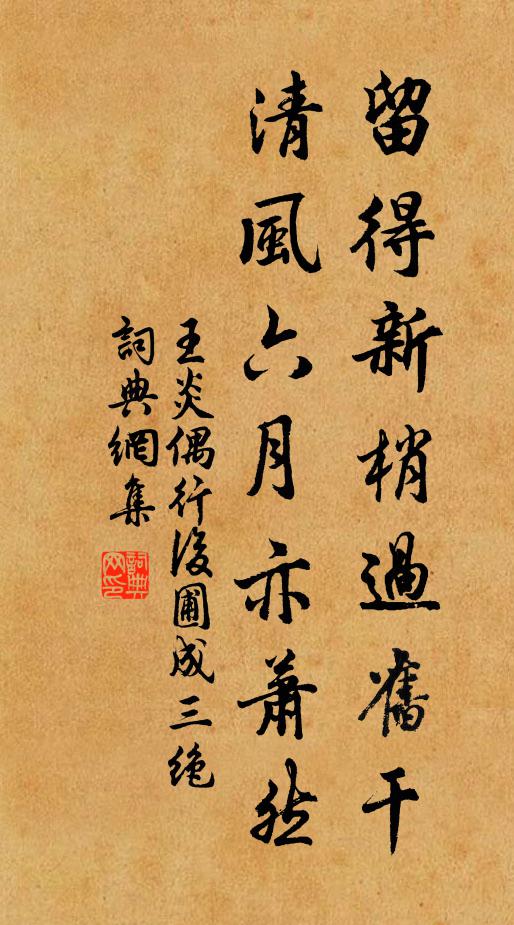 留得新梢過舊干
清風六月亦蕭然
王炎偶行後圃成三绝
詞典網集
詞典网印